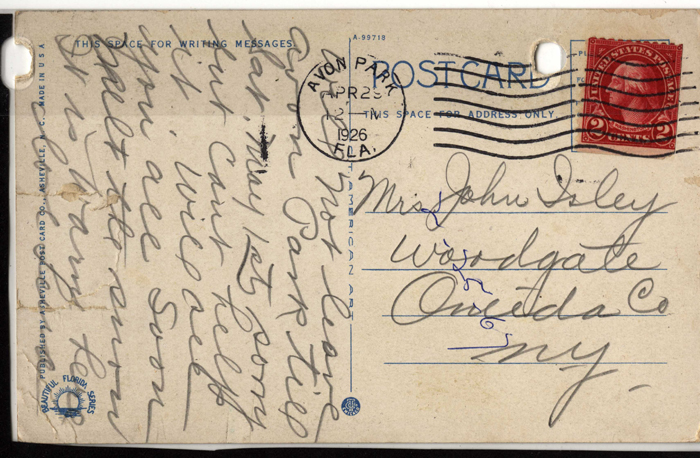 A-99718
THIS SPACE FOR WRITING MESSAGES
POST CARD
THIS SPACE FOR ADDRESS ONLY.
AVON PARK
APR
1926
FLA.
UNITED STATES POSTAGE
2 CENTS 2
Mrs John Isley
Woodgate
Oneida Co
NY.
will not leave
Avon Park till
Sat. May 1st sorry
but cant help
it. will see
you all soon
melt the snow
It is warm here
PUBLISHED BY ASHEVILLE POST CARD CO., ASHEVILLE, N. C. MADE IN U S A
BEAUTIFUL FLORIDA SERIES